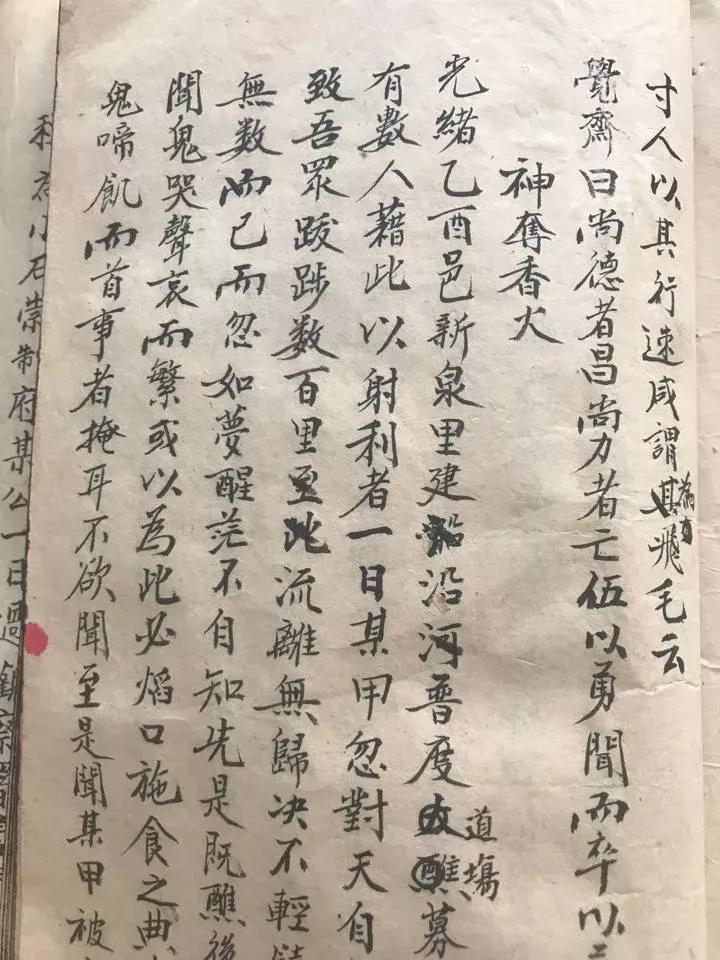 寸人以其行速咸謂為飛毛云
覺齋曰尚德者昌尚力者亡伍以勇聞而卒以
神奪香火
光緒乙酉邑新泉里建船沿河普度道場醮募
有數人藉此以射利者一日某甲忽對天自
致吾眾跋踄数百里至此流離無歸决不輕
無数而已而忽如夢醒茫不自知先是既醮後
聞鬼哭聲哀而繁或以為此必焰口施食之典
鬼啼飢而首事者掩耳不欲聞至是聞某甲被
石崇制府某公一日過